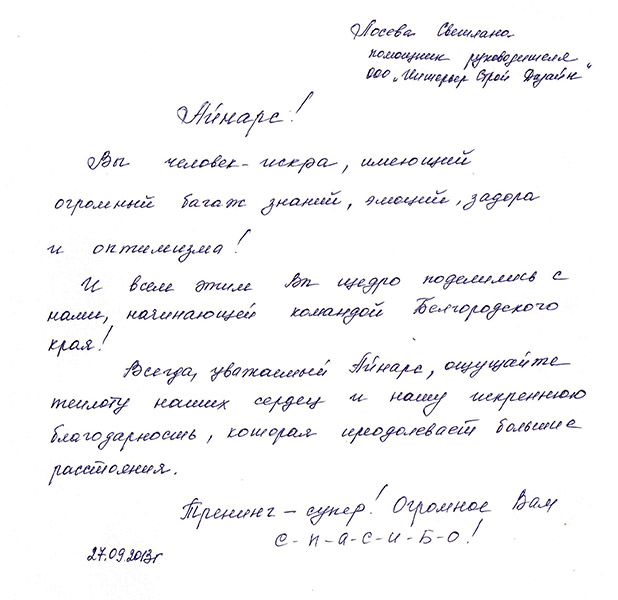 Лосева Светлана
помощник руководителя
ООО „Интерьер Строй Дизайн"
Айнарс!
Вы человек-искра, имеющий
огромный багаж знаний, эмоций, задора
и оптимизма!
И всем этим Вы щедро поделились с
нами, начинающей командой Белгородского
края!
Всегда, уважаемый Айнарс, ощущайте
теплоту наших сердец и нашу искреннюю
благодарность, которая преодолевает большие
расстояния.
Тренинг – супер! Огромное Вам
С-П-А-С-И-Б-О!
27.09.2013г